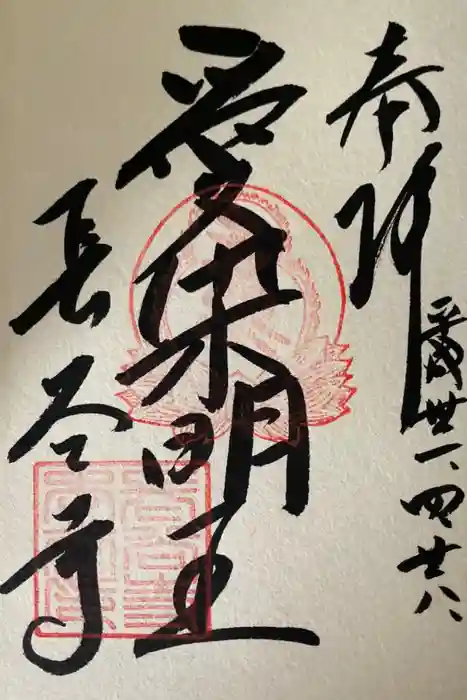 奉拝
平成卅一、四、廿八
愛染明王
長谷寺